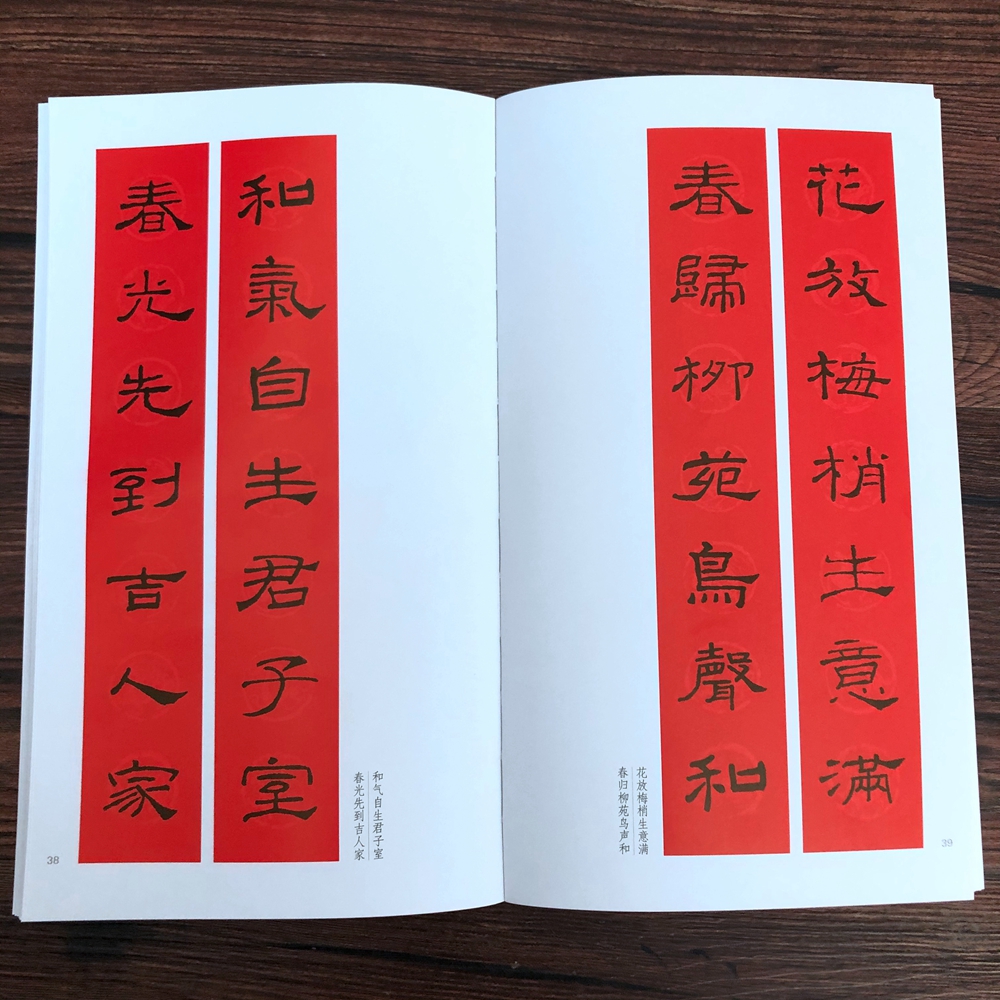 和氣自生君子室
春光先到吉人家
和气自生君子室
春光先到吉人家
38
花放梅梢生意滿
春歸柳苑鳥聲和
花放梅梢生意满
春归柳苑鸟声和
39